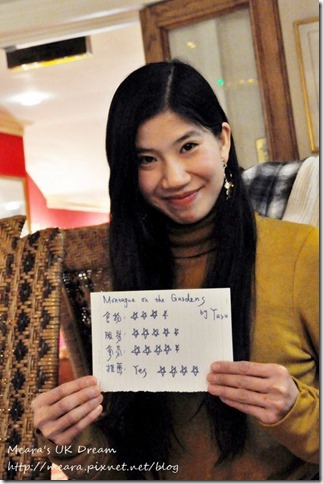 Montague on the Gardens
食物: ☆☆☆
by Yasu
服務: ☆☆☆☆
氣氛: ☆☆☆☆
推薦: Yes ☆☆☆☆
Meara's UK Dream
http://meara.pixnet.net/blog